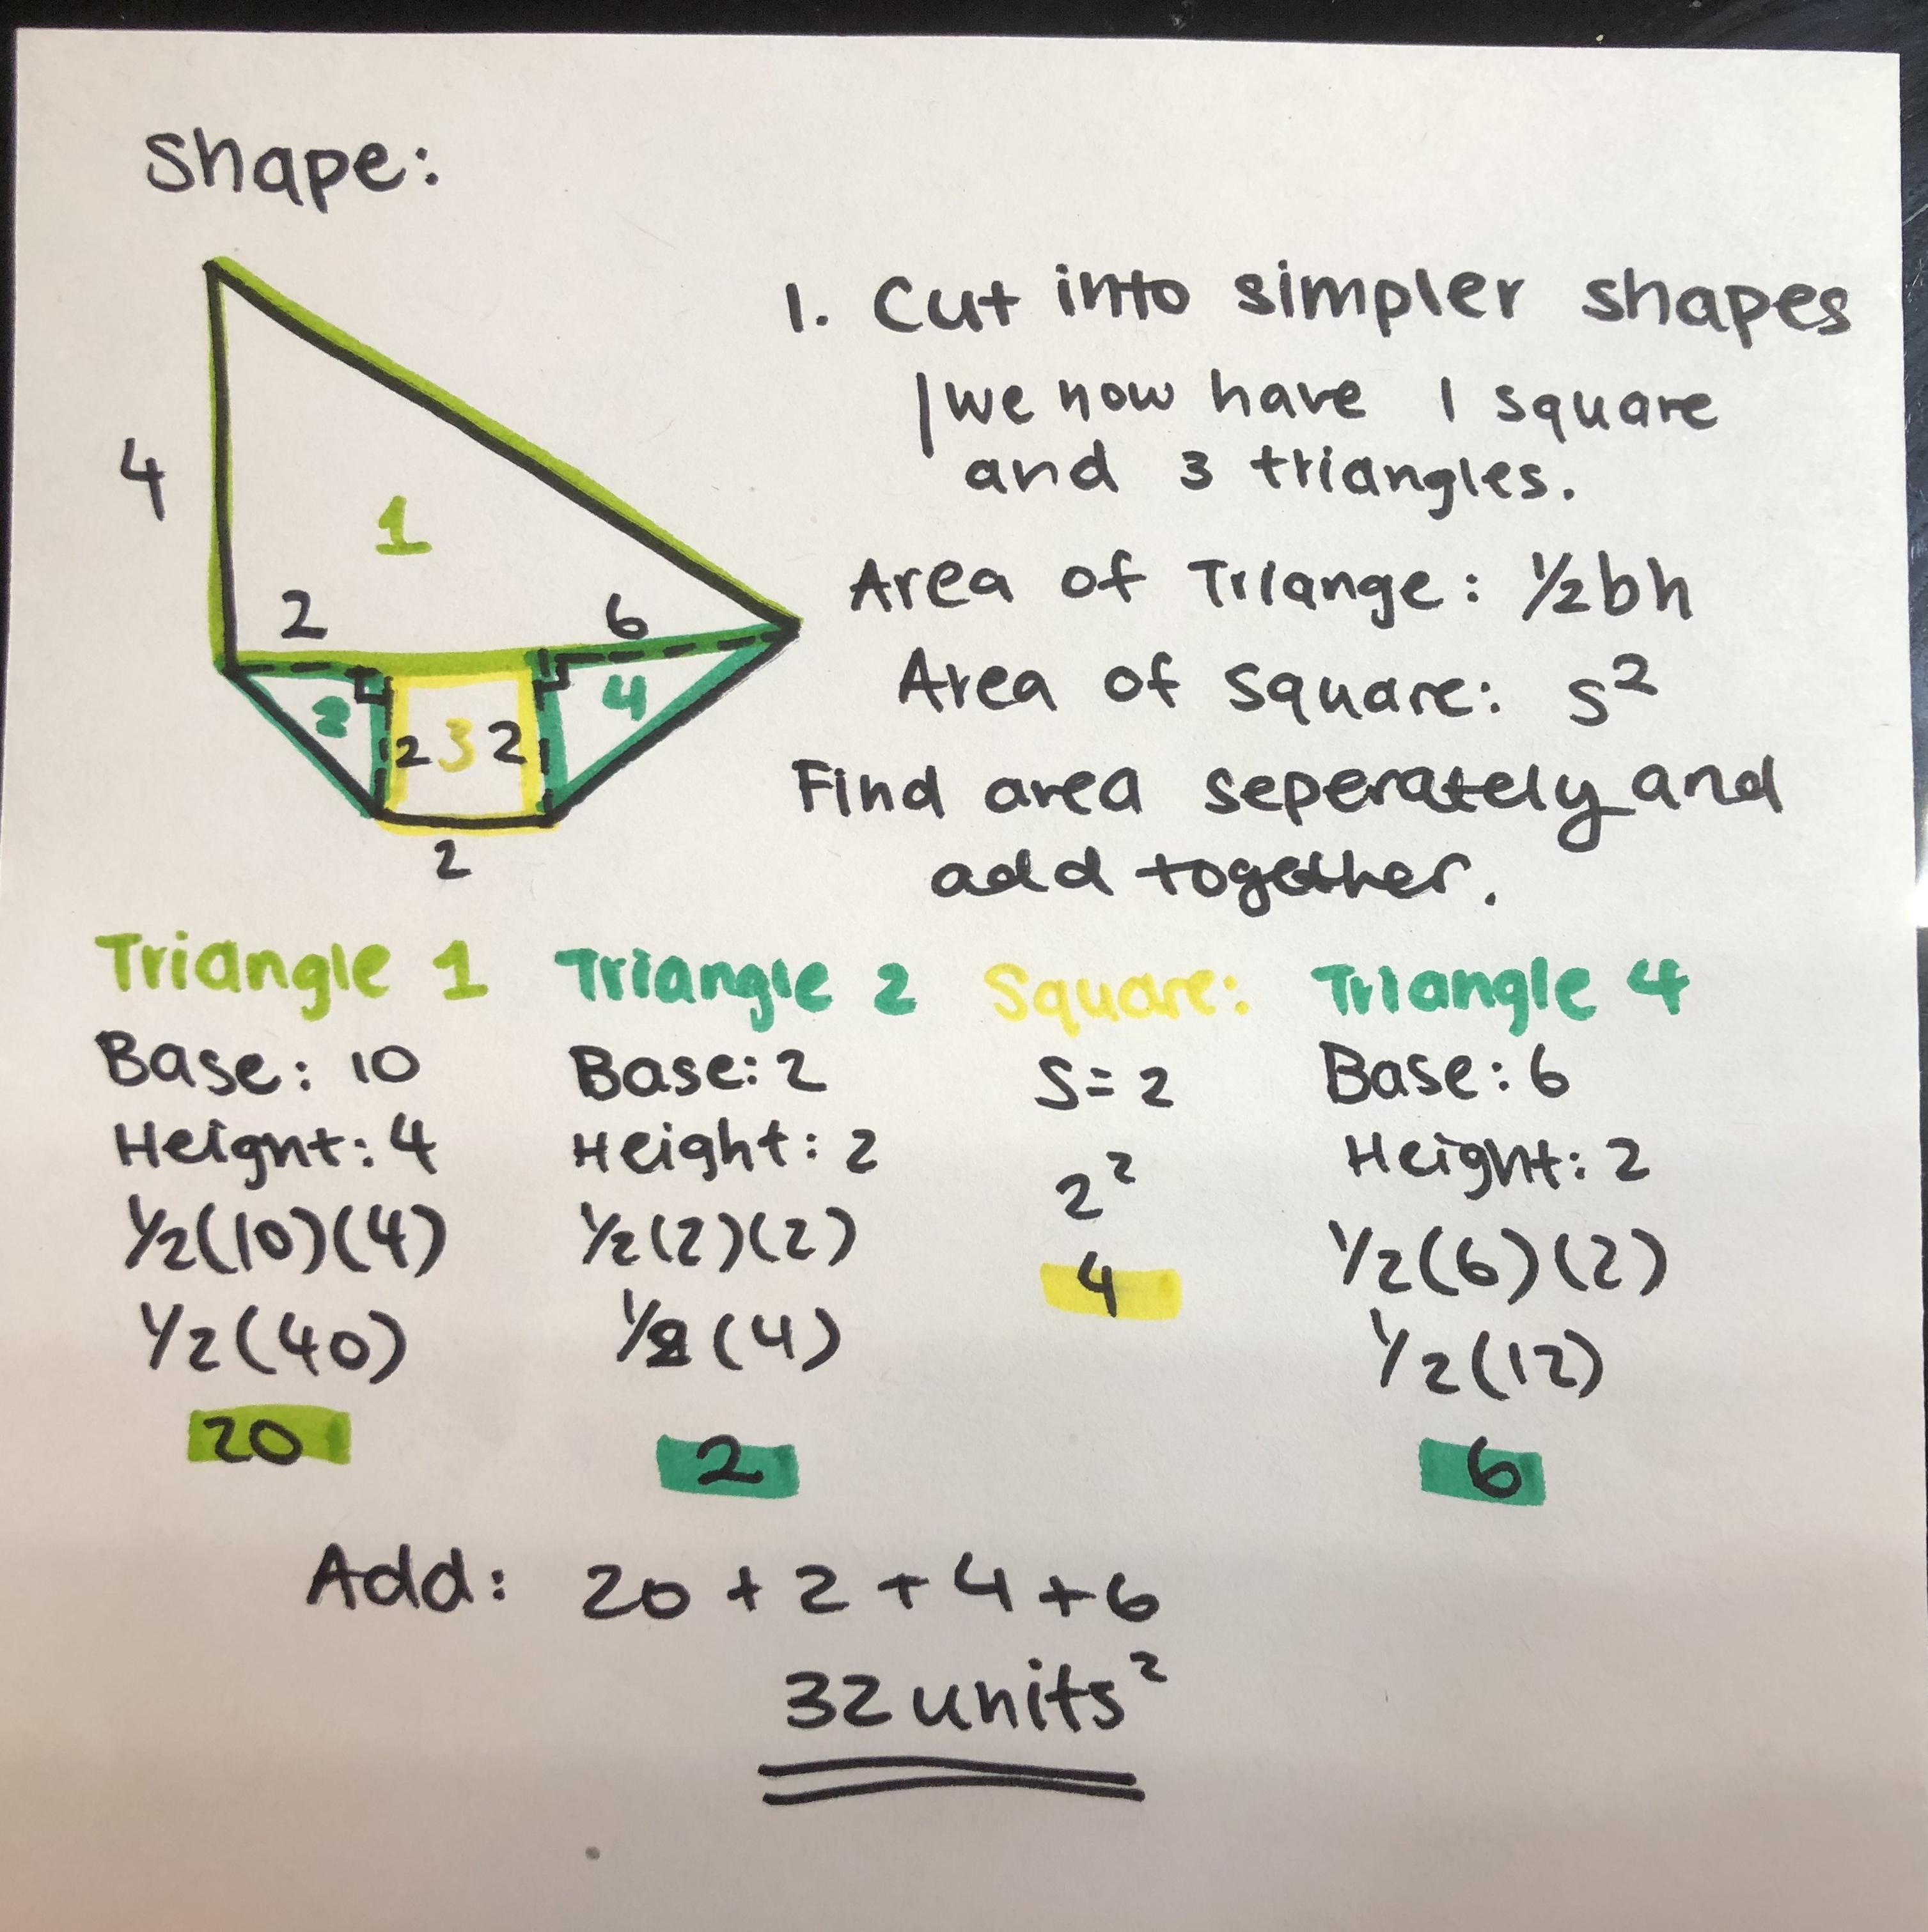 Shape:
1. Cut into simpler shapes
we now have 1 square
and 3 triangles.
4
1
2
6
2
4
2 3 2
2
Area of Trıange: ½bh
Area of square: s²
Find area seperately and
add together.
Triangle 1
Base: 10
Height: 4
½(10)(4)
½(40)
20
Triangle 2
Base: 2
Height: 2
½(2)(2)
½(4)
2
Square:
S=2
2²
4
Triangle 4
Base: 6
Height: 2
½(6)(2)
½(12)
6
Add: 20+2+4+6
32 units²